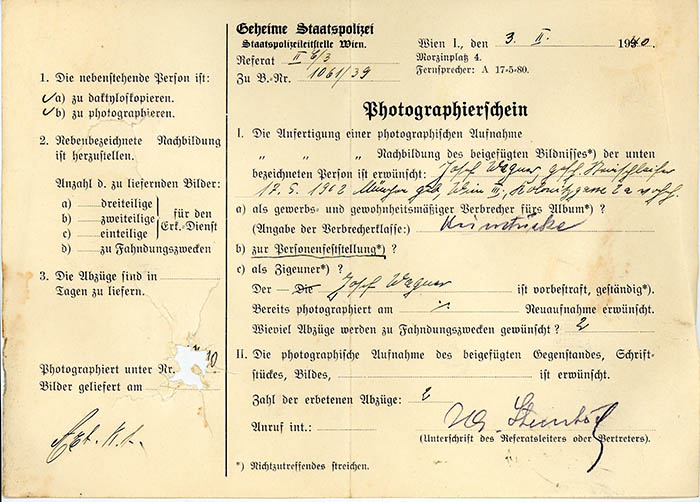 Geheime Staatspolizei
Staatspolizeileitstelle Wien.
Referat II
Zu B.-Nr. 1061/39
Wien I., den 3. II. 1940.
Morzinplatz 4.
Fernsprecher: A 17-5-80.
1. Die nebenstehende Person ist:
a) zu daktyloskopieren.
b) zu photographieren.
2. Nebenbezeichnete Nachbildung
ist herzustellen.
Anzahl d. zu liefernden Bilder:
a) dreiteilige
b) zweiteilige
c) einteilige
für den
Erk.-Dienst
d) zu Fahndungszwecken
3. Die Abzüge sind in
Tagen zu liefern.
Photographiert unter Nr. 10
Bilder geliefert am
Photographierschein
I. Die Anfertigung einer photographischen Aufnahme
„ „ „ Nachbildung des beigefügten Bildnisses*) der unten
bezeichneten Person ist erwünscht: Josef Wagner,
12. 5. 1902 München geb., Wien III.,
a) als gewerbs- und gewohnheitsmäßiger Verbrecher fürs Album*) ?
(Angabe der Verbrecherklasse:)
b) zur Personenfeststellung*) ?
c) als Zigeuner*) ?
Der Die Josef Wagner ist vorbestraft, geständig*).
Bereits photographiert am ./. Neuaufnahme erwünscht.
Wieviel Abzüge werden zu Fahndungszwecken gewünscht ? 2
II. Die photographische Aufnahme des beigefügten Gegenstandes, Schrift-
stückes, Bildes, ist erwünscht.
Zahl der erbetenen Abzüge: 2
Anruf int.:
(Unterschrift des Referatsleiters oder Vertreters).
*) Nichtzutreffendes streichen.